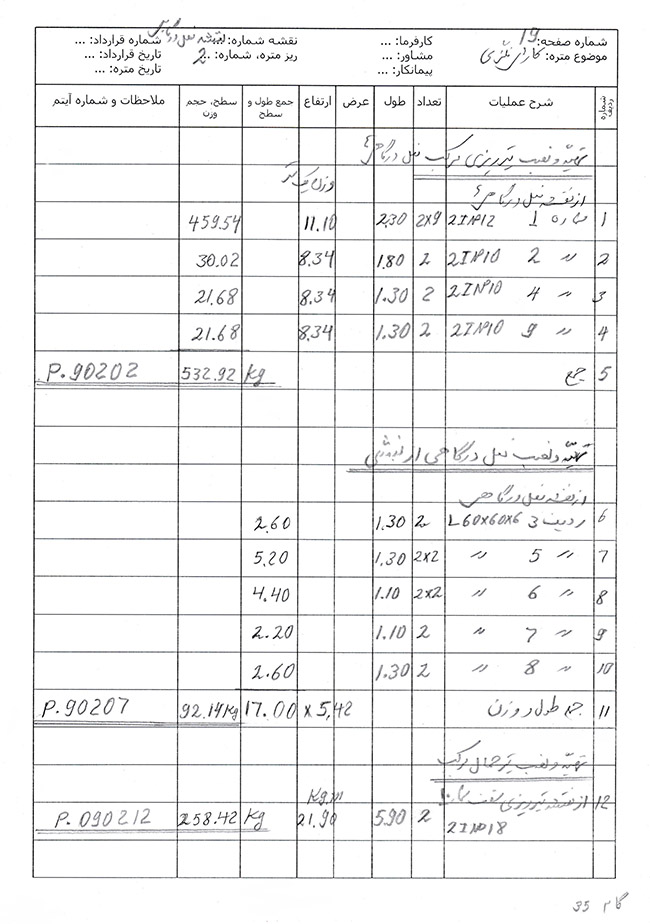 شماره صفحه: 19 کارفرما: ... نقشه شماره: نقشه نعل درگاهی شماره قرارداد: ...
موضوع متره: کارهای فلزی مشاور: ... ریز متره، شماره: 2.. تاریخ قرارداد: ...
پیمانکار: ... تاریخ متره: ...
شماره ردیف شرح عملیات تعداد طول عرض ارتفاع جمع طول و سطح سطح، حجم وزن ملاحظات و شماره آیتم
تهیه و نصب تیرریزی مرکب نعل درگاهی
از نقشه نعل درگاهی وزن یک متر
1 شماره 1 2INP12 2x9 2.30 11.10 459.54
2 〃 2 2INP10 2 1.80 8.34 30.02
3 〃 4 2INP10 2 1.30 8.34 21.68
4 〃 9 2INP10 2 1.30 8.34 21.68
5 جمع kg 532.92 P.90202
تهیه و نصب نعل درگاهی از نبشی
از نقشه نعل درگاهی
6 ردیف 3 L60x60x6 2 1.30 2.60
7 〃 5 〃 2x2 1.30 5.20
8 〃 6 〃 2x2 1.10 4.40
9 〃 7 〃 2 1.10 2.20
10 〃 8 〃 2 1.30 2.60
11 جمع طول و وزن x 5,42 17.00 92.14 Kg P.90207
تهیه و نصب تیر حمال مرکب
12 از نقشه تیرریزی سقف Kg.m
2INP18 2 5.90 21.90 Kg 258.42 P. 090212
گام 35